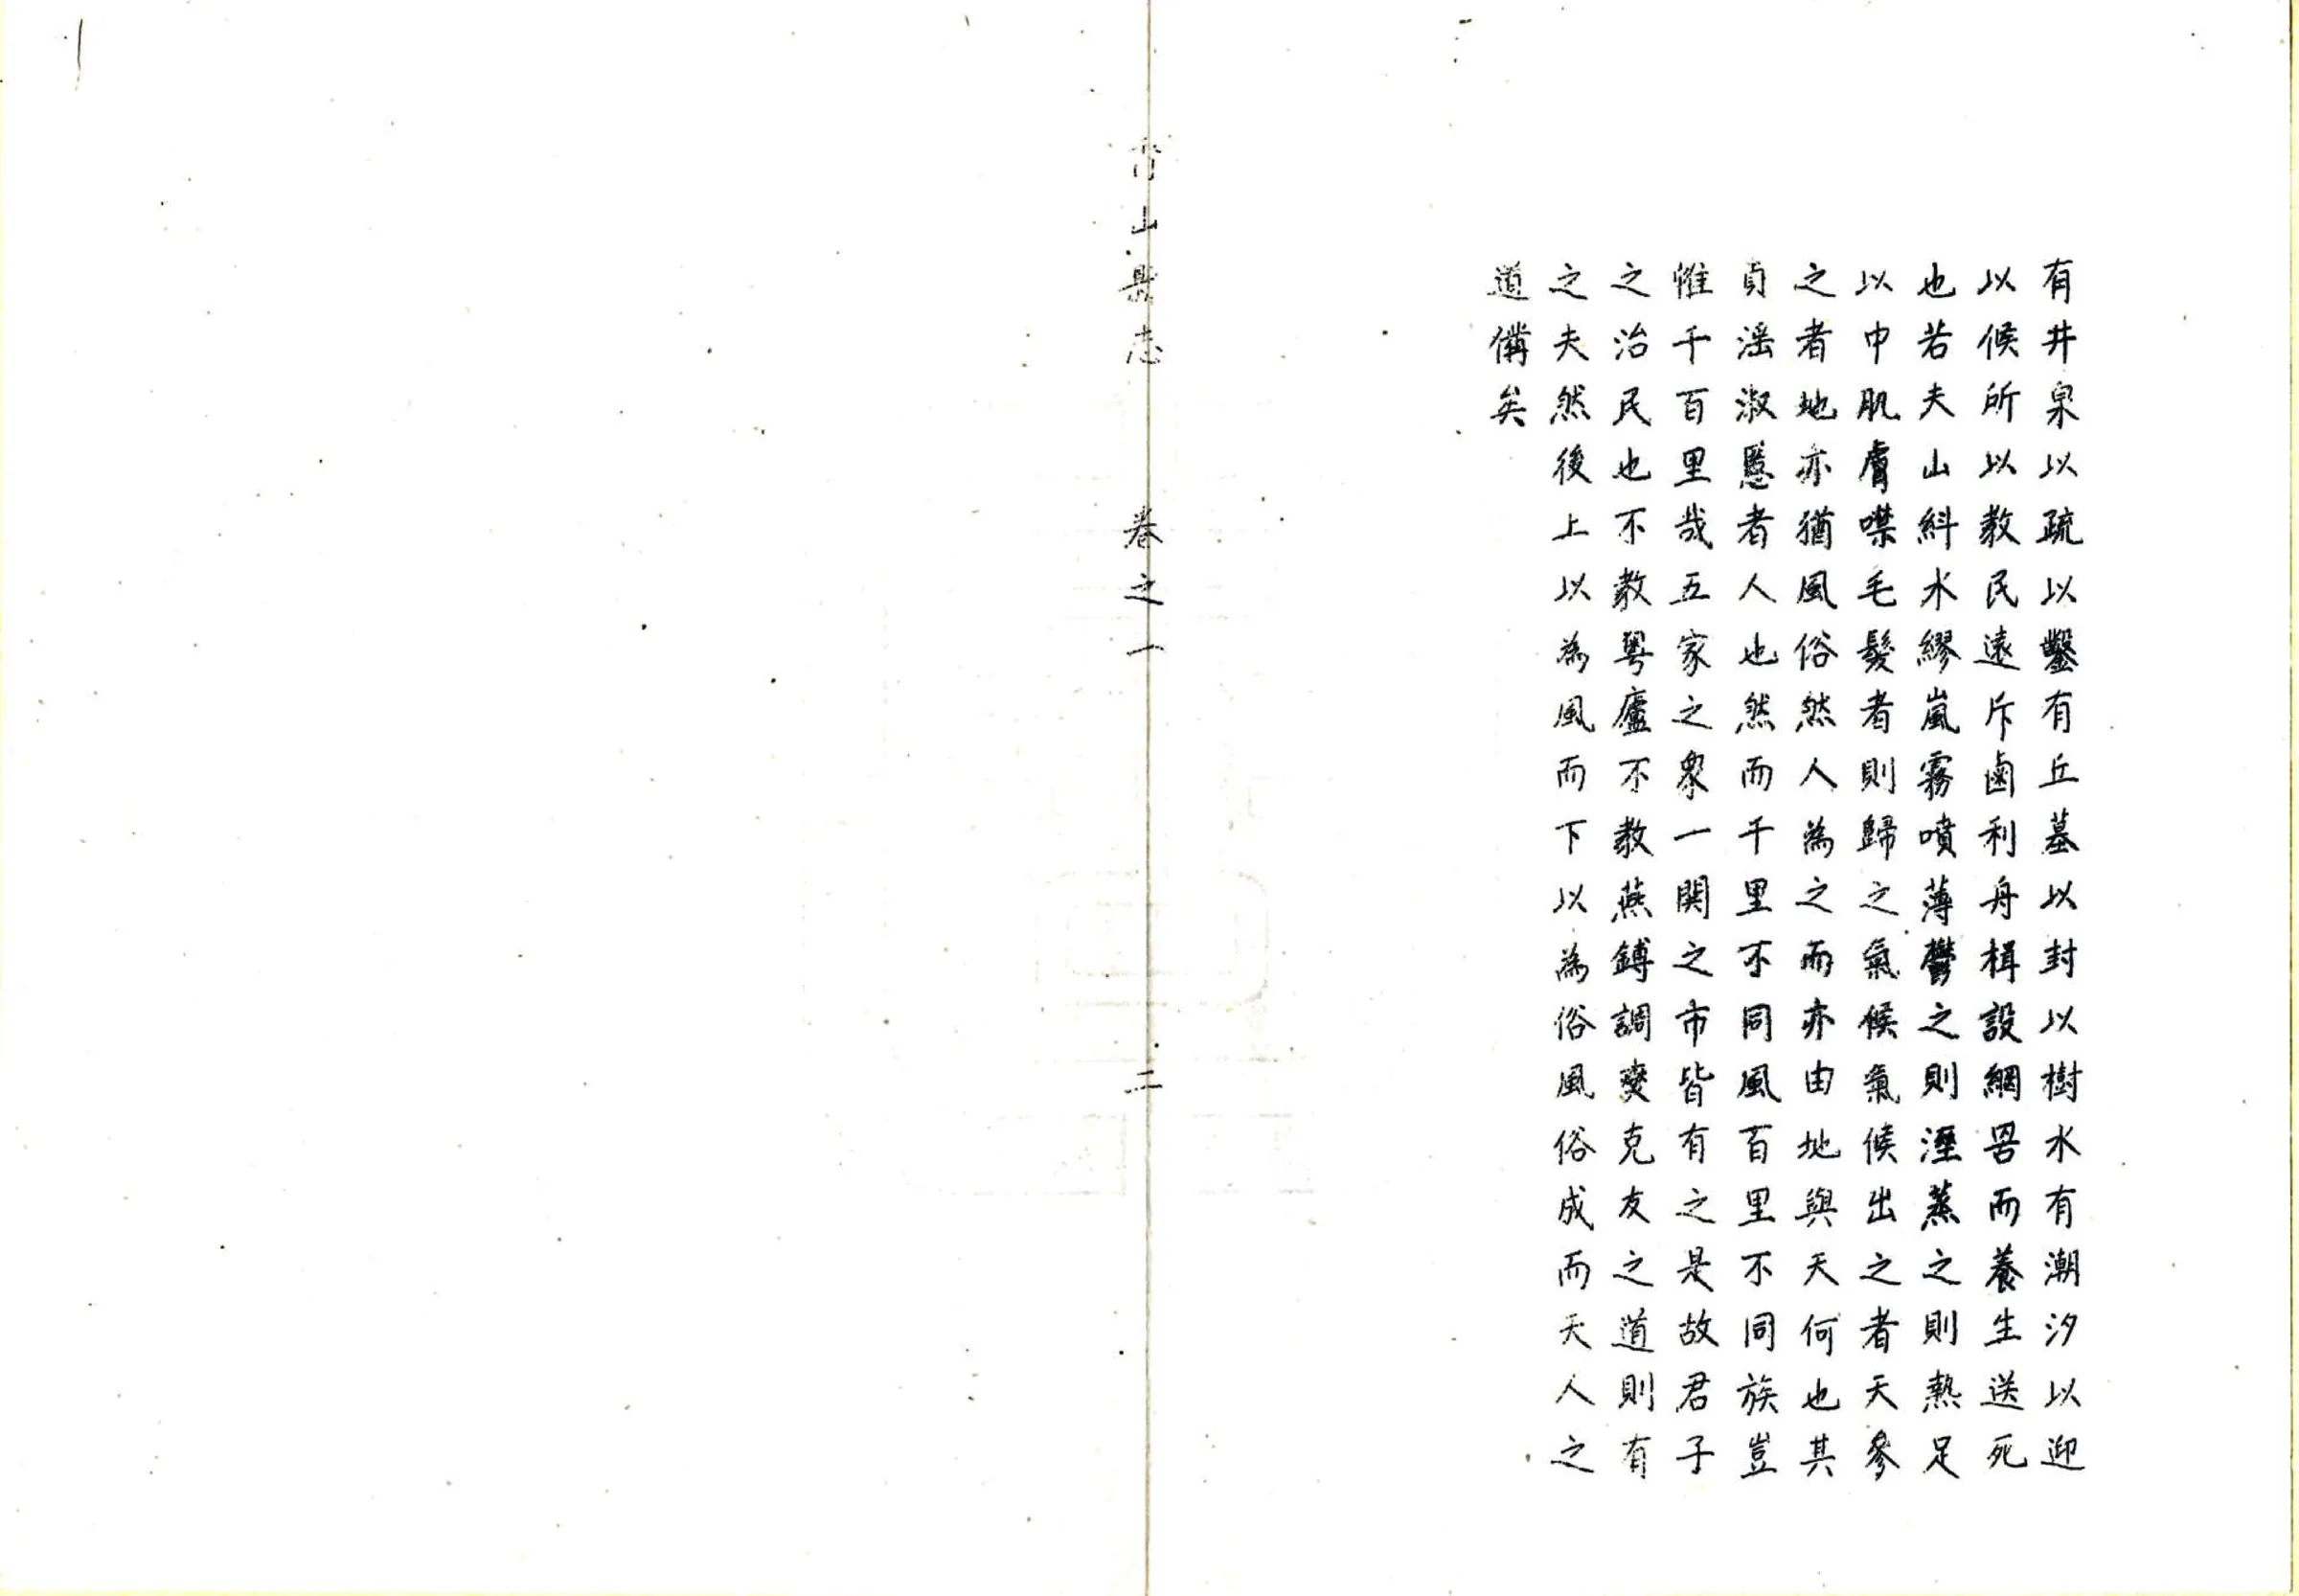 有井泉以疏以鑿有丘墓以封以樹水有潮汐以迎
以候所以教民遠斥鹵利舟楫設網罟而養生送死
也若夫山糾水繆嵐霧噴薄鬱之則溼蒸之則熱足
以中肌膚噤毛髮者則歸之氣候氣候出之者天參
之者地亦猶風俗然人為之而亦由地與天何也其
貞滛淑慝者人也然而千里不同風百里不同族豈
惟千百里哉五家之衆一閧之市皆有之是故君子
之治民也不教粤廬不教燕鎛調爕克友之道則有
之夫然後上以為風而下以為俗風俗成而天人之
道備矣
香山縣志 卷之一 二